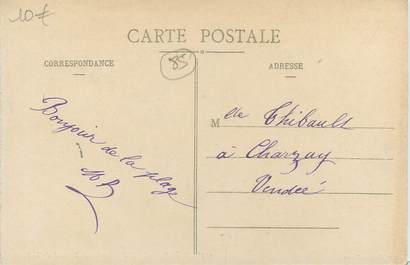 10€
CARTE POSTALE
85
CORRESPONDANCE
ADRESSE
Bonjour de la plage
Mlle Thibault
à Charzay
Vendée